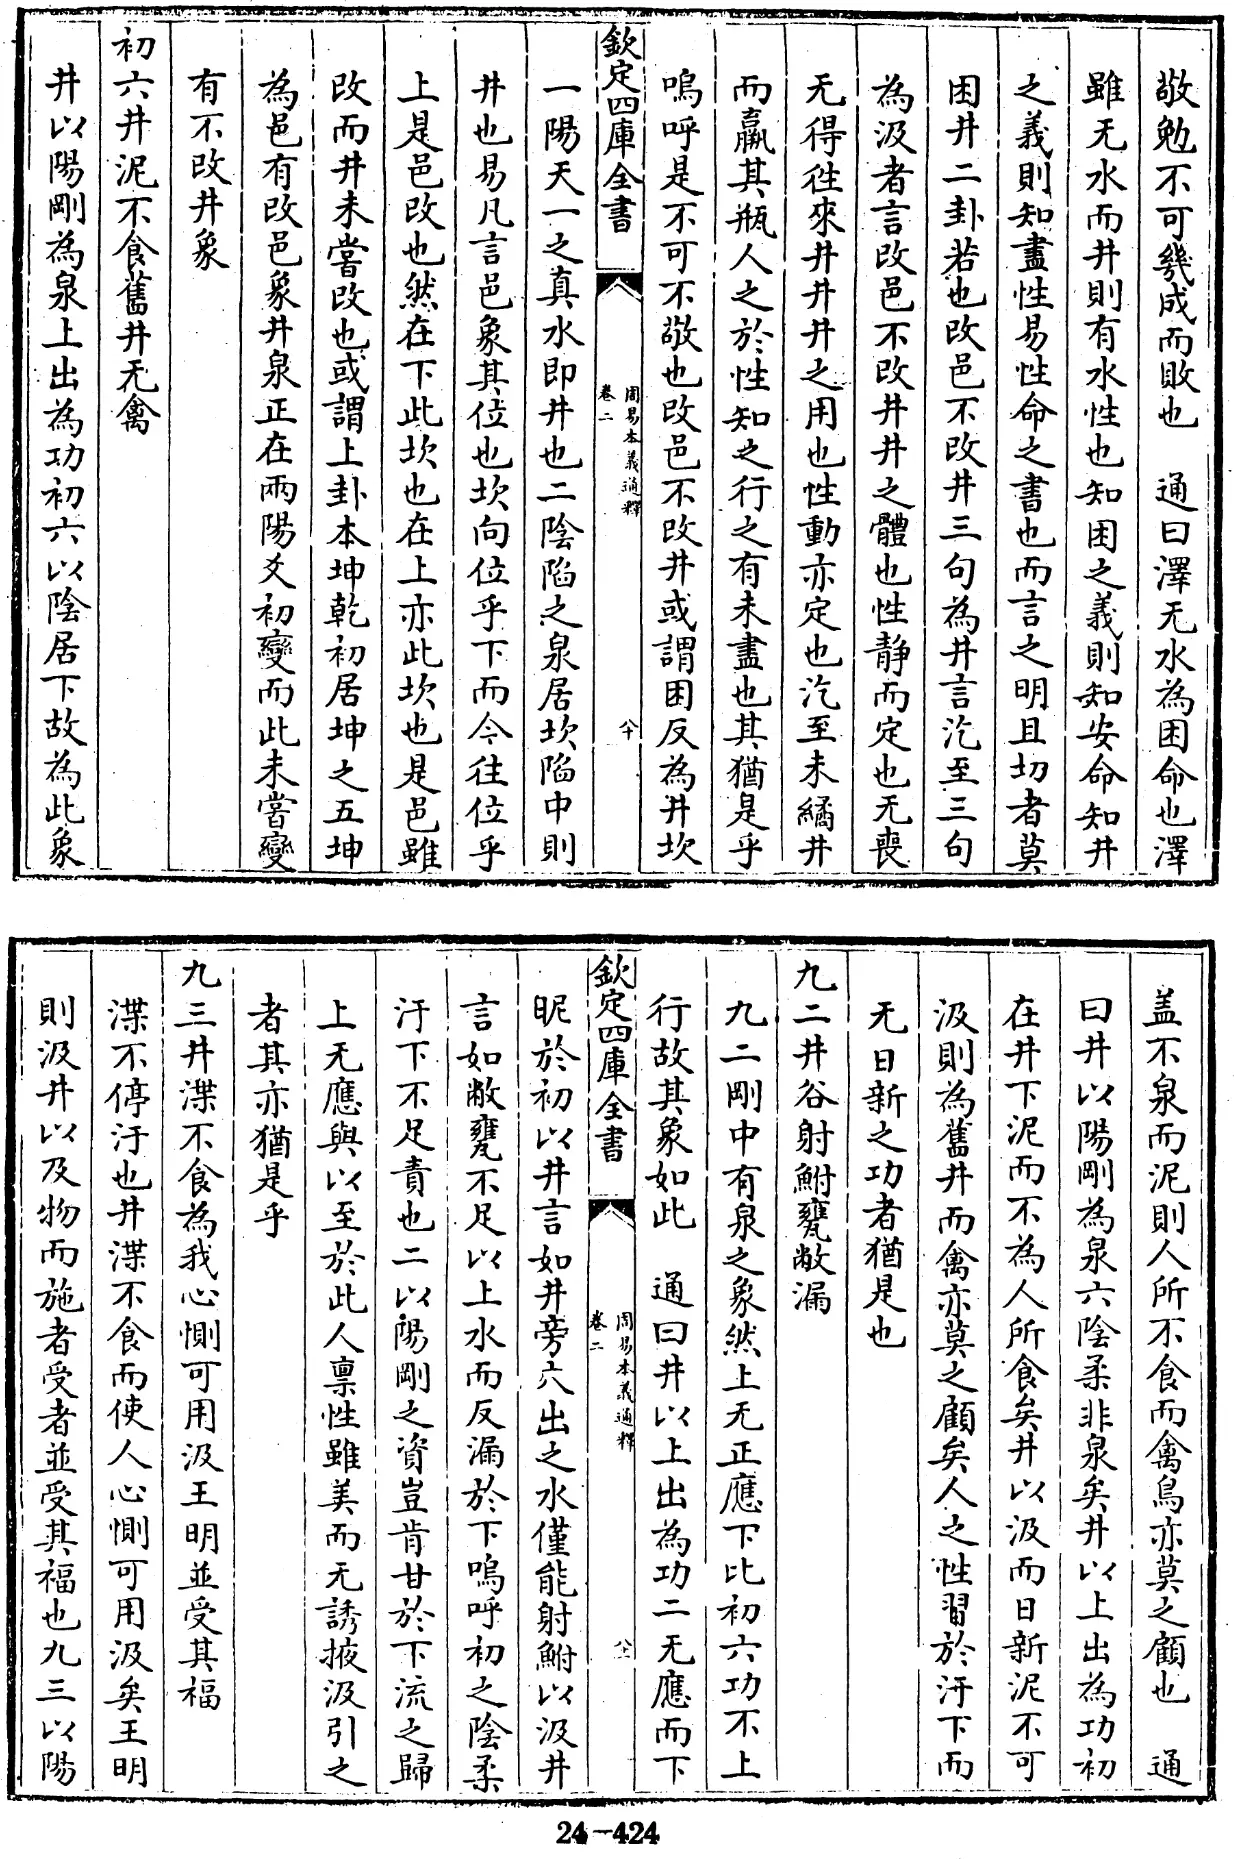 敬勉不可幾成而敗也　通曰澤无水為困命也澤
雖无水而井則有水性也知困之義則知安命知井
之義則知盡性易性命之書也而言之明且切者莫
困井二卦若也改邑不改井三句為井言汔至三句
為汲者言改邑不改井井之體也性静而定也无喪
无得徃來井井井之用也性動亦定也汔至未繘井
而羸其瓶人之於性知之行之有未盡也其猶是乎
嗚呼是不可不敬也改邑不改井或謂困反為井坎
欽定四庫全書
周易本義通釋
卷二
八十
一陽天一之真水即井也二陰陷之泉居坎陷中則
井也易凡言邑象其位也坎向位乎下而今往位乎
上是邑改也然在下此坎也在上亦此坎也是邑雖
改而井未嘗改也或謂上卦本坤乾初居坤之五坤
為邑有改邑象井泉正在兩陽爻初變而此未嘗變
有不改井象
初六井泥不食舊井无禽
井以陽剛為泉上出為功初六以陰居下故為此象
盖不泉而泥則人所不食而禽鳥亦莫之顧也　通
曰井以陽剛為泉六陰柔非泉矣井以上出為功初
在井下泥而不為人所食矣井以汲而日新泥不可
汲則為舊井而禽亦莫之顧矣人之性習於汙下而
无日新之功者猶是也
九二井谷射鮒甕敝漏
九二剛中有泉之象然上无正應下比初六功不上
行故其象如此　通曰井以上出為功二无應而下
欽定四庫全書
周易本義通釋
卷二
八十一
昵於初以井言如井旁穴出之水僅能射鮒以汲井
言如敝甕不足以上水而反漏於下嗚呼初之陰柔
汙下不足責也二以陽剛之資豈肯甘於下流之歸
上无應與以至於此人禀性雖美而无誘掖汲引之
者其亦猶是乎
九三井渫不食為我心惻可用汲王明並受其福
渫不停汙也井渫不食而使人心惻可用汲矣王明
則汲井以及物而施者受者並受其福也九三以陽
24-424